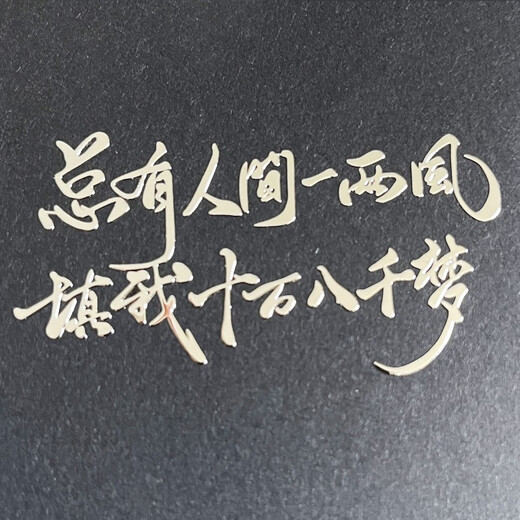 总有人間一两风
填我十万八千梦